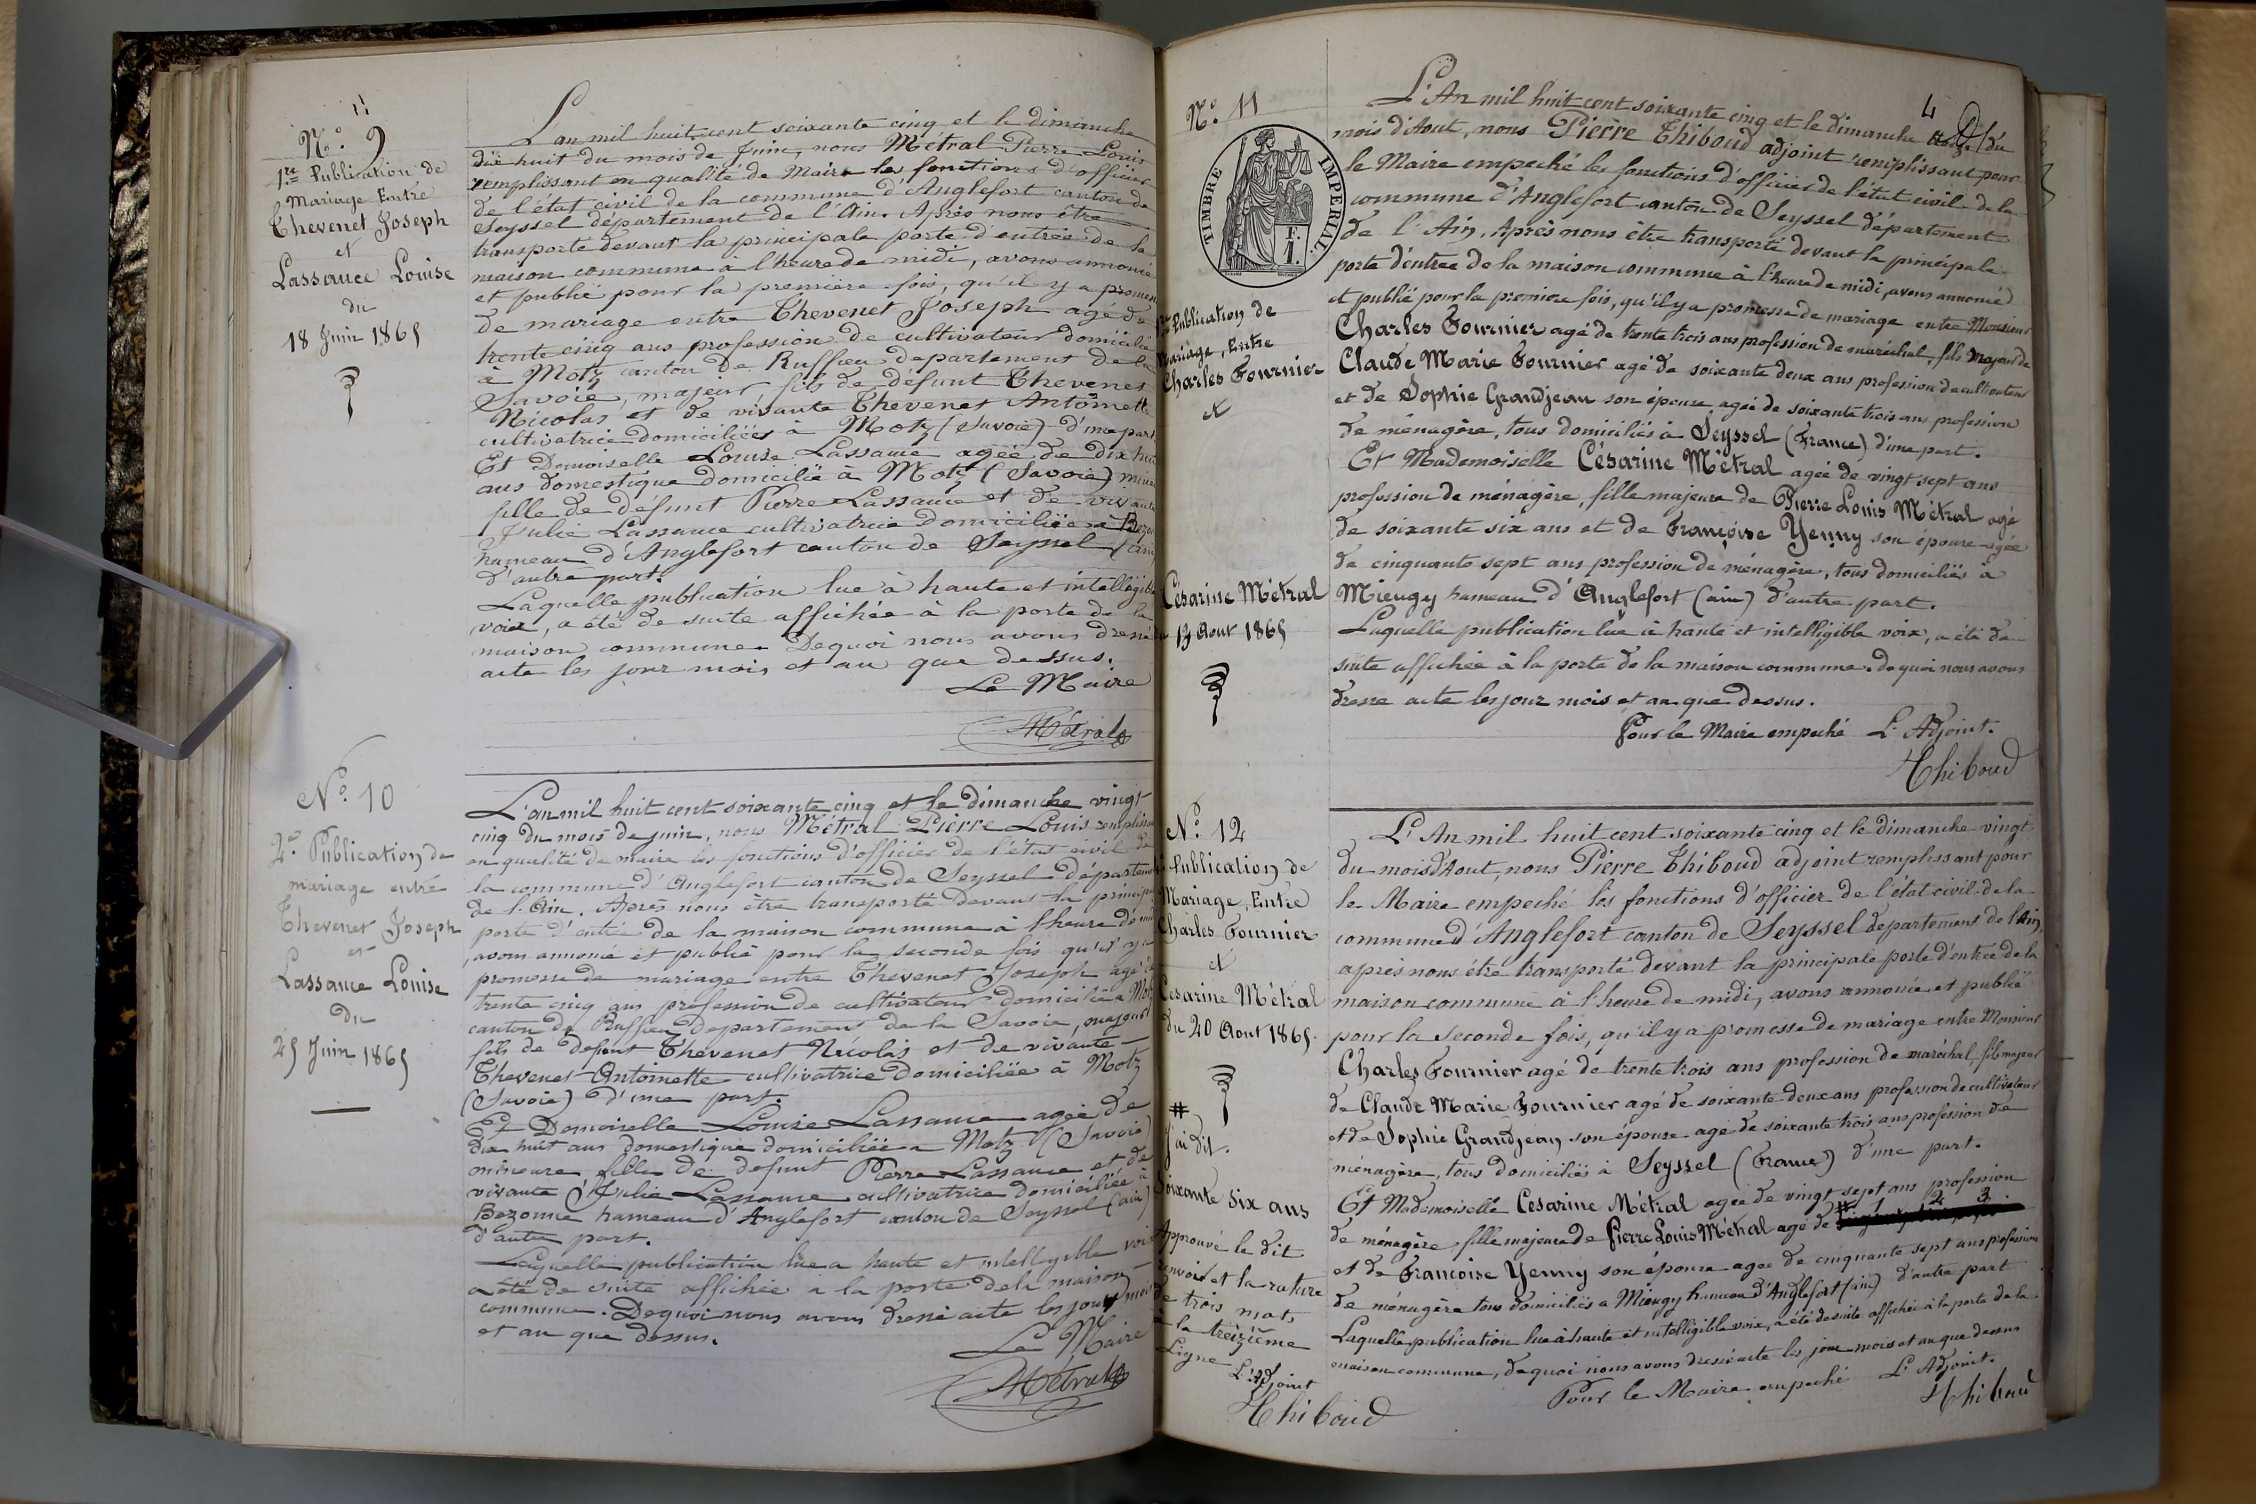 N.o 9
1.re Publication de
Mariage Entre
Thevenet Joseph
et
Lassauce Louise
du
18 Juin 1865
L'an mil huit cent soixante cinq et le dimanche
dix huit du mois de Juin, nous Métral Pierre Louis
remplissant en qualité de Maire les fonctions d'officier
de l'état civil de la commune d'Anglefort canton de
Seyssel département de l'Ain. Après nous être
transporté devant la principale porte d'entrée de la
maison commune à l'heure de midi, avons annoncé
et publié pour la première fois, qu'il y a promesse
de mariage entre Thevenet Joseph agé de
trente cinq ans profession de cultivateur domicilié
à Motz canton de Ruffieu département de la
Savoie, majeur, fils de défunt Thevenet
Nicolas et de vivante Thevenet Antoinette
cultivatrice domiciliées à Motz (Savoie) d'une part
Et Demoiselle Louise Lassauce agée de dix huit
ans domestique domicilié à Motz (Savoie)
fille de défunt Pierre Lassauce et de vivante
Julie Lassauce cultivatrice domiciliée à
hameau d'Anglefort canton de Seyssel (ain)
d'autre part.
Laquelle publication lue à haute et intelligible
voix, a été de suite affichée à la porte de la
maison commune. Dequoi nous avons dressé
acte les jour mois et an que dessus.
Le Maire
Métral
N.o 10
2.e Publication de
mariage entre
Thevenet Joseph
et
Lassauce Louise
du
25 Juin 1865
L'an mil huit cent soixante cinq et le dimanche vingt
cinq du mois de juin, nous Métral Pierre Louis
en qualité de maire les fonctions d'officier de l'état civil de
la commune d'Anglefort canton de Seyssel département
de l'Ain. Après nous être transporté devant la
porte d'entrée de la maison commune à l'heure de midi
, avons annoncé et publié pour la seconde fois qu'il y a
promesse de mariage entre Thevenet Joseph agé de
trente cinq ans profession de cultivateur domicilié a Motz
canton de Ruffieu département de la Savoie, majeur
fils de défunt Thevenet Nicolas et de vivante
Thevenet Antoinette cultivatrice domiciliée à Motz
(Savoie) d'une part.
Et Demoiselle Louise Lassauce agée de
dix huit ans domestique domiciliée a Motz (Savoie)
mineure fille de defunt Pierre Lassauce et de
vivante Julie Lassauce cultivatrice domiciliée à
Bezonne hameau d'Anglefort canton de Seyssel (ain)
d'autre part.
Laquelle publication lue a haute et intelligible voix
a été de suite affichée a la porte de la maison
commune. Dequoi nous avons dressé acte les jour mois
et an que dessus.
Le Maire
Métral
4
N.o 11
TIMBRE IMPERIAL.
F.
1.
Publication de
Mariage, Entre
Charles Fournier
et
Césarine Métral
13 Aout 1865
L'An mil huit cent soixante cinq et le dimanche du
mois d'Aout, nous Pierre Thiboud adjoint remplissant pour
le Maire empeché les fonctions d'officier de l'état civil de la
commune d'Anglefort canton de Seyssel département
de l'Ain. Après nous être transporté devant la principale
porte d'entrée de la maison commune à l'heure de midi, avons annoncé
et publié pour la première fois, qu'il y a promesse de mariage entre Monsieur
Charles Fournier agé de trente trois ans profession de maréchal, fils Majeur de
Claude Marie Fournier agé de soixante deux ans profession de cultivateur
et de Sophie Grandjean son épouse agée de soixante trois ans profession
de ménagère, tous domiciliés à Seyssel (France) d'une part.
Et Mademoiselle Césarine Métral agée de vingt sept ans
profession de ménagère, fille majeure de Pierre Louis Métral agé
de soixante six ans et de Françoise Yenny son épouse agée
de cinquante sept ans profession de ménagère, tous domiciliés à
Mieugy hameau d'Anglefort (ain) d'autre part.
Laquelle publication lue à haute et intelligible voix, a été de
suite affichée à la porte de la maison commune. de quoi nous avons
dressé acte les jour mois et an que dessus.
Pour le Maire empeché L'Adjoint.
Thiboud
N.o 12
Publication de
Mariage, Entre
Charles Fournier
et
Cesarine Métral
du 20 Aout 1865.
#
J'ai dit.
Soixante six ans
Approuvé le dit
renvoi et la rature
de trois mots
à la treizième
Ligne L'Adjoint
Thiboud
L'An mil huit cent soixante cinq et le dimanche vingt
du mois d'Aout, nous Pierre Thiboud adjoint remplissant pour
le Maire empeché les fonctions d'officier de l'état civil de la
commune d'Anglefort canton de Seyssel département de l'Ain,
après nous être transporté devant la principale porte d'entrée de la
maison commune à l'heure de midi, avons annoncé et publié
pour la seconde fois, qu'il y a promesse de mariage entre Monsieur
Charles Fournier agé de trente trois ans profession de maréchal, fils majeur
de Claude Marie Fournier agé de soixante deux ans profession de cultivateur
et de Sophie Grandjean son épouse agé de soixante trois ans profession de
ménagère, tous domiciliés à Seyssel (France) d'une part.
Et Mademoiselle Cesarine Métral agée de vingt sept ans profession
de ménagère, fille majeure de Pierre Louis Métral agé de # 1 2 3.
et de Francoise Yenny son épouse agee de cinquante sept ans profession
de ménagère tous domiciliés a Mieugy hameau d'Anglefort (ain) d'autre part
Laquelle publication lue à haute et intelligible voix, a été de suite affichée à la porte de la
maison commune, de quoi nous avons dressé acte les jour mois et an que dessus
Pour le Maire empeché L'Adjoint.
Thiboud